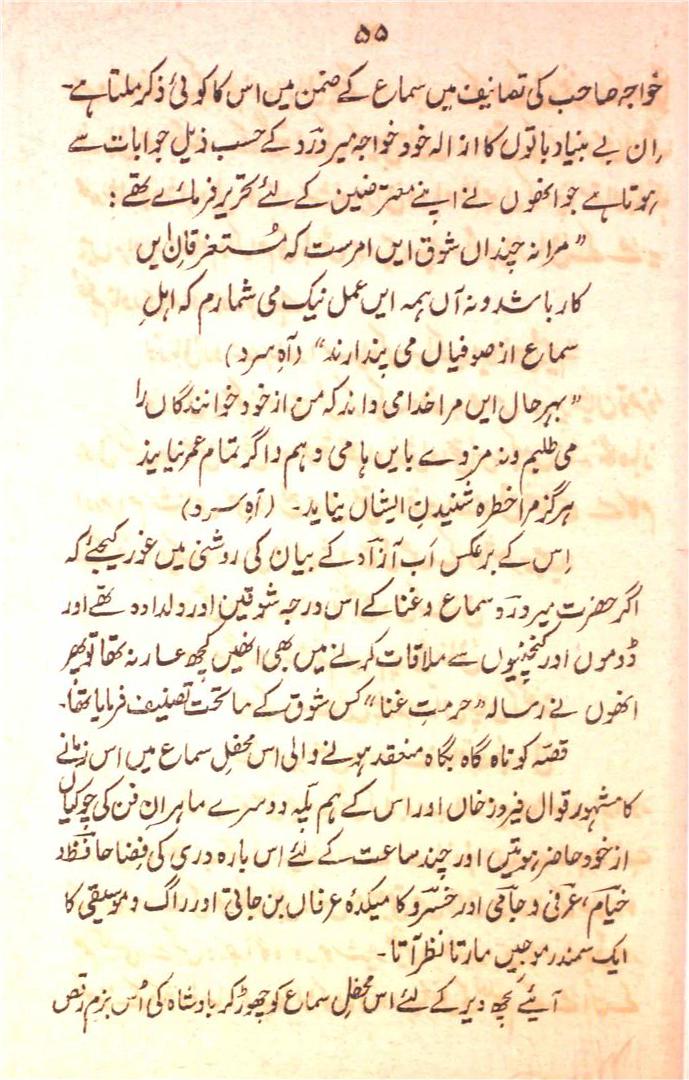 ۵۵
خواجہ صاحب کی تصانیف میں سماع کے ضمن میں اس کا کوئی ذکر ملتا ہے۔
ان بے بنیاد باتوں کا ازالہ خود خواجہ میر درؔد کے حسب ذیل جوابات سے
ہوتا ہے جو انھوں نے اپنے معترضین کے لئے تحریر فرمائے تھے :
”مرا نہ چنداں شوق ایں امرست کہ مُستغرقانِ ایں
کار باشد و نہ آں ہمہ ایں عمل نیک می شمارم کہ اہلِ
سماع از صوفیاں می پندارند“ (آہِ سرد)
”بہر حال ایں مرا خدا می داند کہ من از خود خوانندگاں را
می طلبم و نہ مزوے بایں ہا می دہم و اگر تمام عمر نیایند
ہرگز مرا خطرہ شنیدنِ ایشاں نیاید۔ (آہِ سرد)
اِس کے برعکس اَب آزآد کے بیان کی روشنی میں غور کیجئے کہ
اگر حضرت میر دردؔ سماع و غنا کے اس درجہ شوقین اور دلدادہ تھے اور
ڈوموں اور کنچنیوں سے ملاقات کرنے میں بھی انھیں کچھ عار نہ تھا تو پھر
انھوں نے رسالہ ”حرمتِ غنا“ کس شوق کے ماتحت تصنیف فرمایا تھا۔
قصّہ کوتاہ گاہ بگاہ منعقد ہونے والی اس محفلِ سماع میں اس زمانے
کا مشہور قوال فیروز خاں اور اس کے ہم پلّہ دوسرے ماہرانِ فن کی چوکیاں
از خود حاضر ہوتیں اور چند ساعت کے لئے اس بارہ دری کی فضا حافظؔ و
خیام، عرفی و جامی اور خسرو کا میکدۂ عرفاں بن جاتی اور راگ و موسیقی کا
ایک سمندر موجیں مارتا نظر آتا۔
آیئے کچھ دیر کے لئے اس محفلِ سماع کو چھوڑ کر بادشاہ کی اُس بزمِ رقص